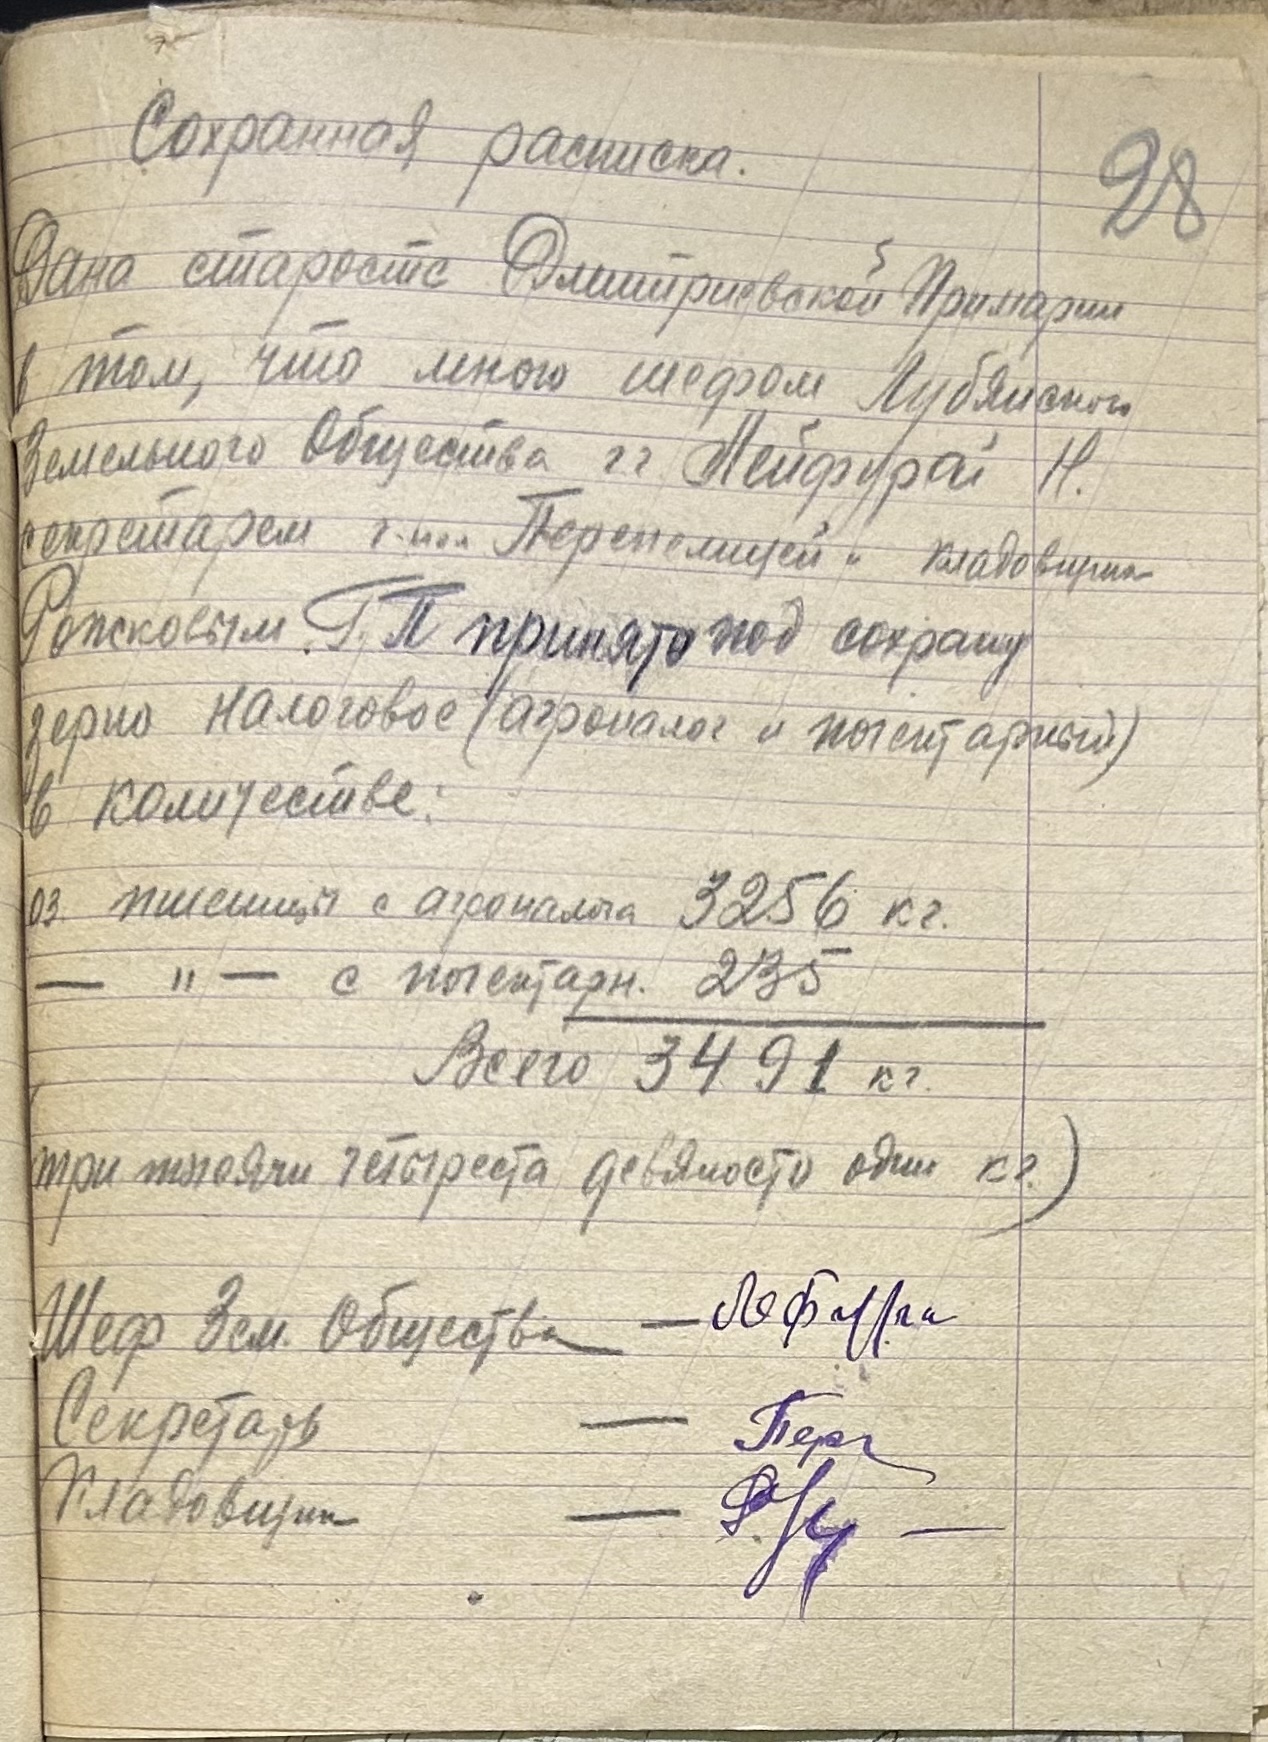 28
Сохранная расписка.
Дана старосте Дмитриевской Примарии
в том, что мною шефом Лубянского
Земельного Общества гг Нейфурай Н.
секретарем г-ном Перепелицей и кладовщик
Рожковым Г.П принято под сохрану
зерно налоговое (агроналог и погектарный)
в количестве:
оз. пшеницы с агроналога 3256 кг.
— " — с погектарн. 235
Всего 3491 кг.
(три тысячи четыреста девяносто один кг.)
Шеф Зем. Общества —
Секретарь — Пере
Кладовщик —